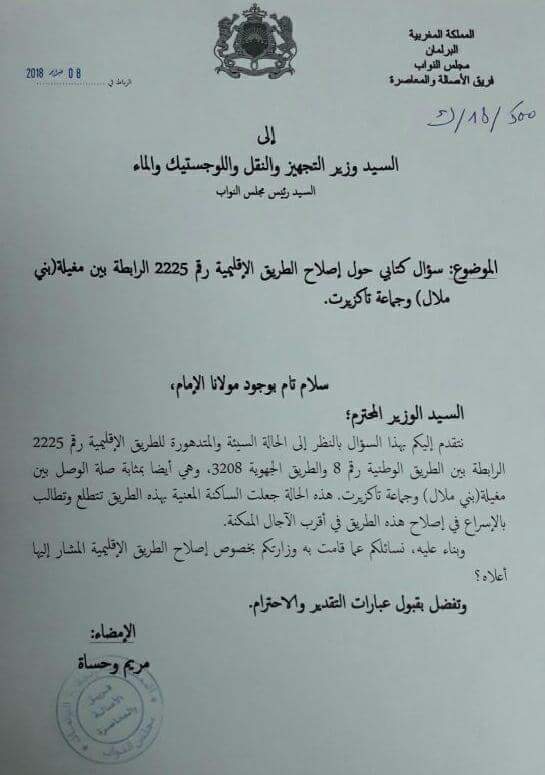 المملكة المغربية
البرلمان
مجلس النواب
فريق الأصالة والمعاصرة
الرباط في
08 2018
إلى
السيد وزير التجهيز والنقل واللوجستيك والماء
السيد رئيس مجلس النواب
الموضوع: سؤال كتابي حول إصلاح الطريق الإقليمية رقم 2225 الرابطة بين مغيلة(بني
ملال) وجماعة تاكزيرت.
سلام تام بوجود مولانا الإمام،
السيد الوزير المحترم؛
نتقدم إليكم بهذا السؤال بالنظر إلى الحالة السيئة والمتدهورة للطريق الإقليمية رقم 2225
الرابطة بين الطريق الوطنية رقم 8 والطريق الجهوية 3208، وهي أيضا بمثابة صلة الوصل بين
مغيلة(بني ملال) وجماعة تاكزيرت. هذه الحالة جعلت الساكنة المعنية بهذه الطريق تتطلع وتطالب
بالإسراع في إصلاح هذه الطريق في أقرب الآجال الممكنة.
وبناء عليه، نسائلكم عما قامت به وزارتكم بخصوص إصلاح الطريق الإقليمية المشار إليها
أعلاه؟
وتفضل بقبول عبارات التقدير والاحترام.
الإمضاء:
مريم وحساة
فريق
الأصالة
والمعاصرة
مجلس النواب